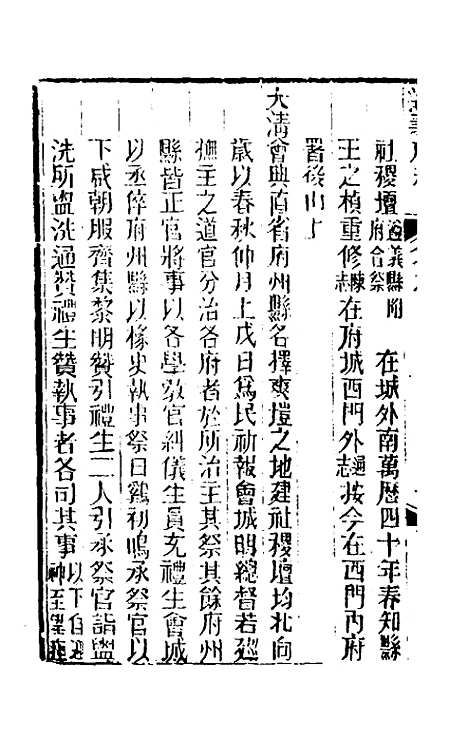 社稷壇遵義縣附府合祭 在城外南萬歷四十年春知縣
王之楨重修陳志在府城西門外通志按今在西門內府
署後山上
大清會典直省府州縣各擇爽塏之地建社稷壇均北向
歲以春秋仲月上戊日為民祈報會城明總督若巡
撫主之道官分治各府者於所治主其祭其餘府州
縣皆正官將事以各學教官糾儀生員充禮生會城
以丞倅府州縣以椽史執事祭日雞初鳴承祭官以
下咸朝服齊集黎明贊引禮生二人引承祭官詣盥
洗所盥洗通贊禮生贊執事者各司其事以下自迎神至望瘞